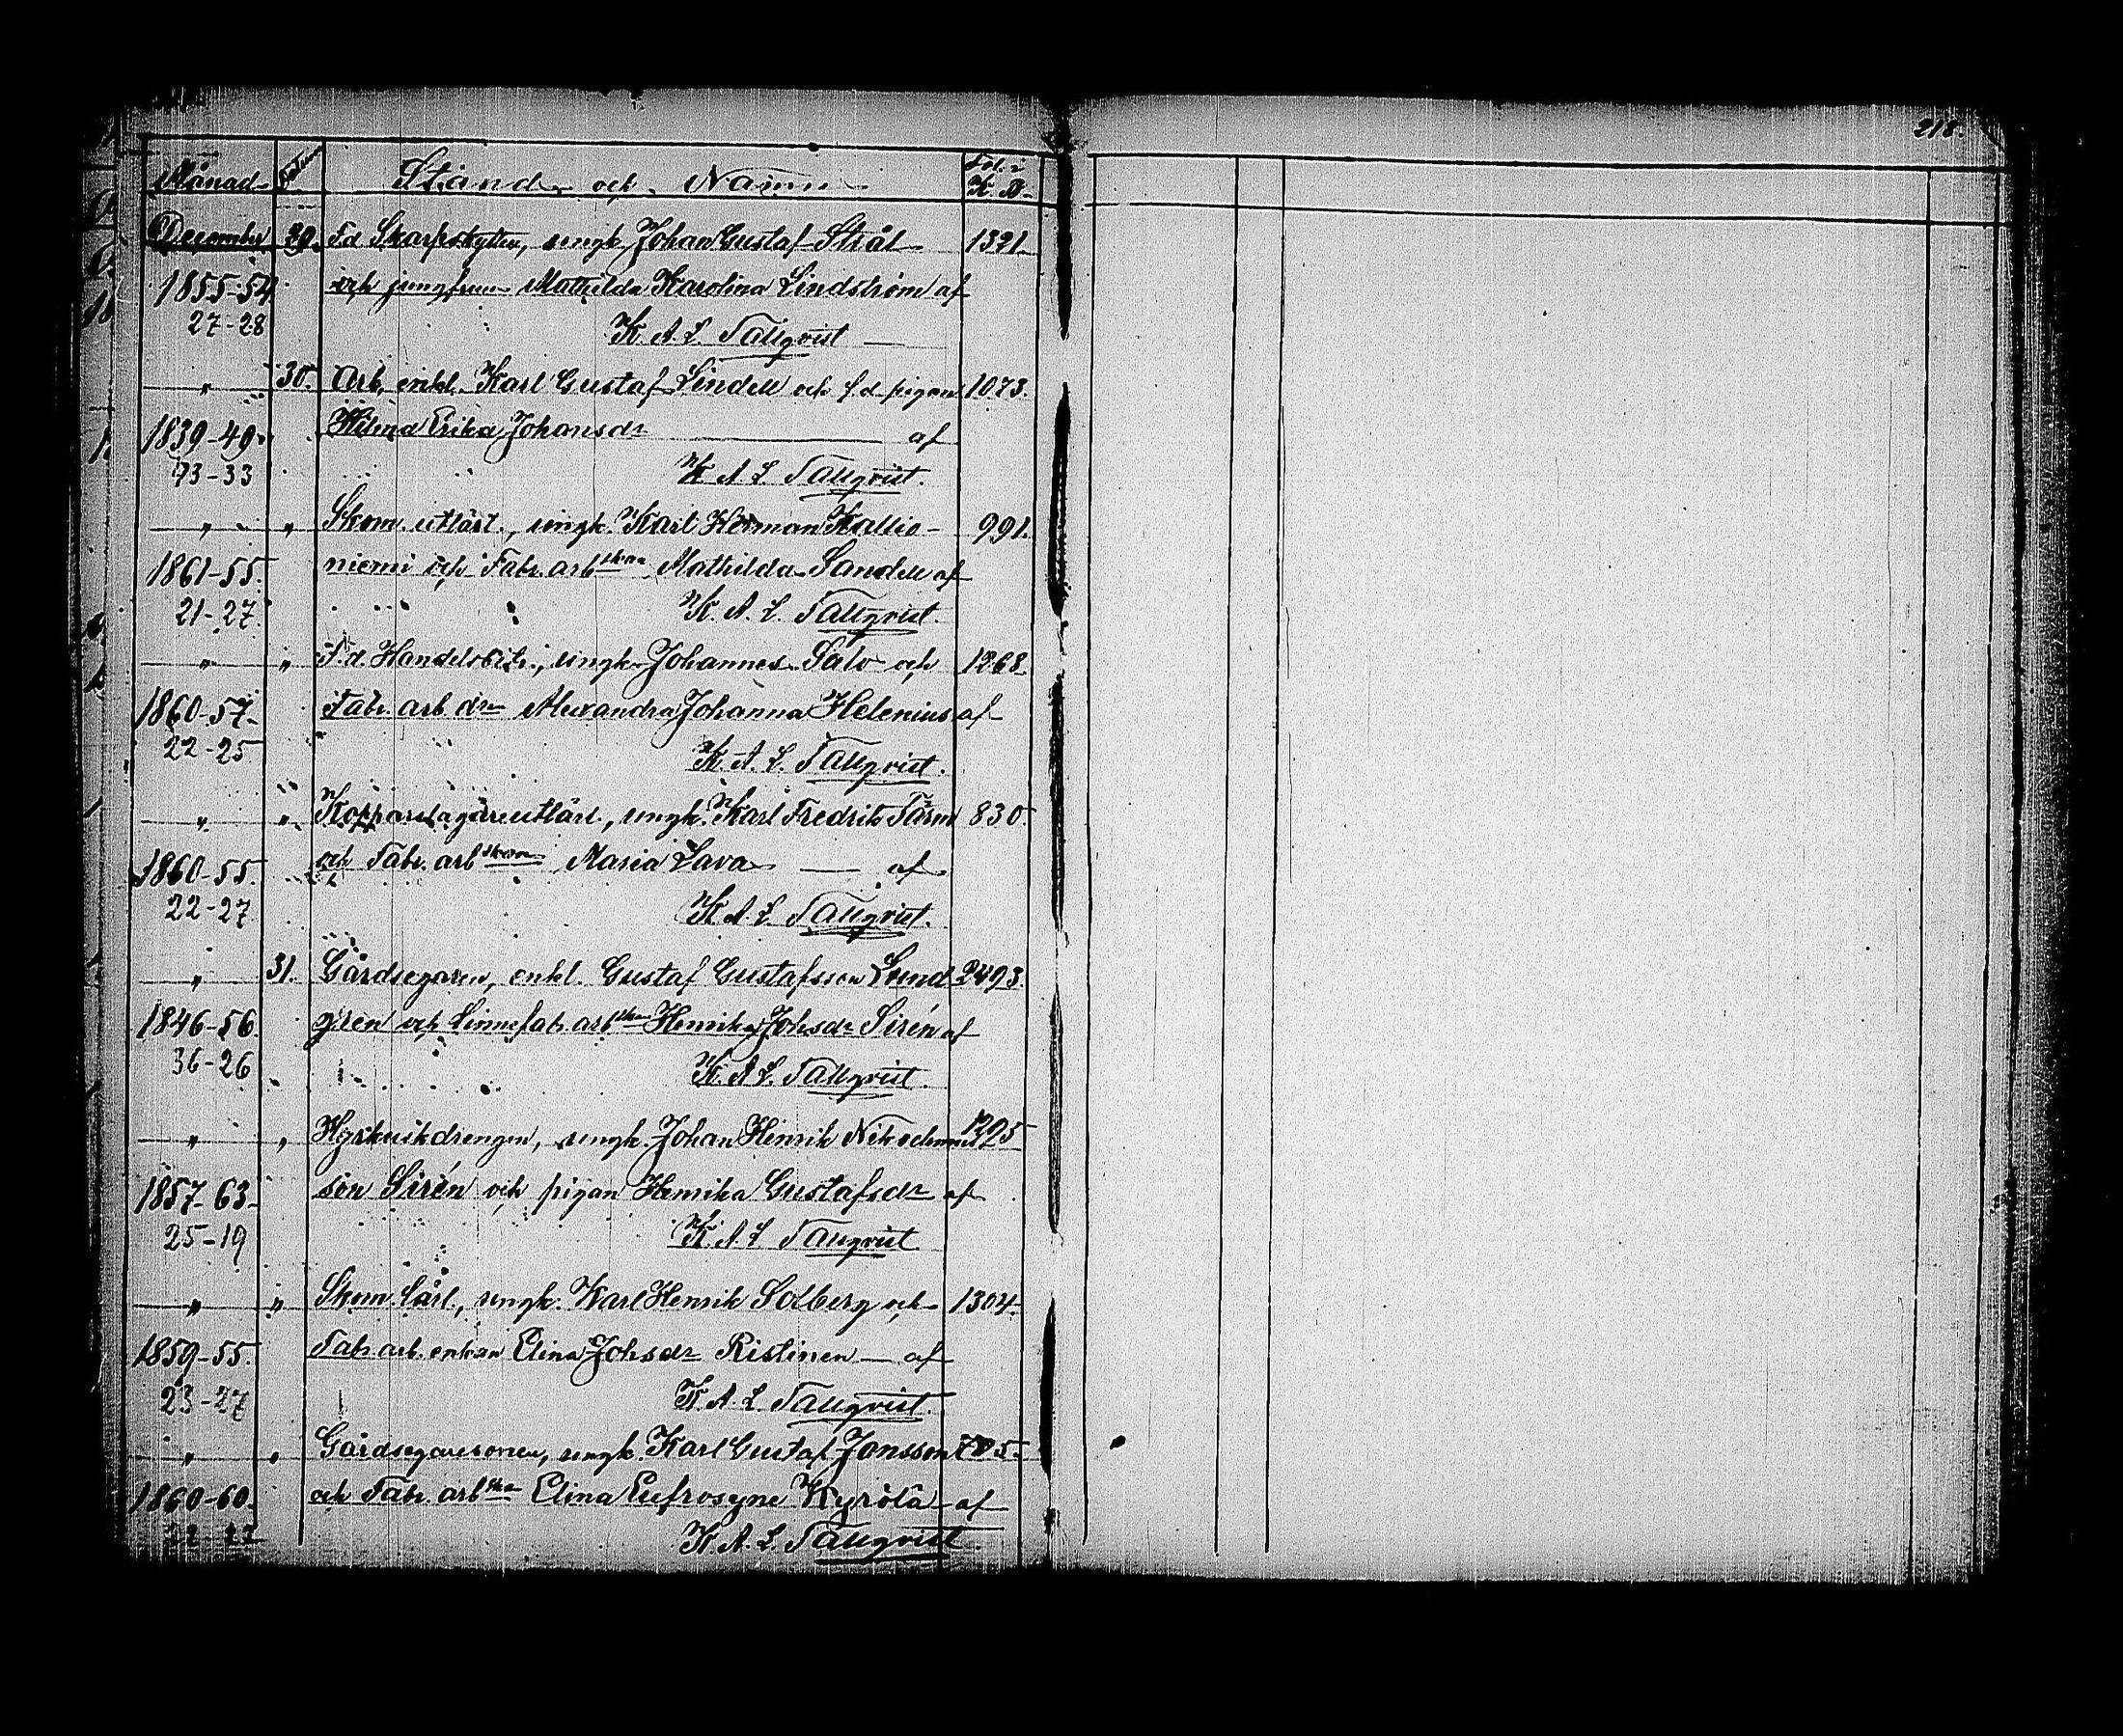 218.
Månad Stånd och Namn Fol. i K. B.
December 30. F.d. Skarpskytten, ungk. Johan Gustaf Stråt 1321.
1855-54 och jungfrun Mathilda Karolina Lindström af
27-28 K. A. L. Tallqvist
" 30. Arb. enkl. Karl Gustaf Lindell och f.d. pigan 1073.
1839-49. Hilma Erika Johansdr af
73-33 K. A. L. Tallqvist.
" " Skom. utlärl., ungk. Karl Herman Kallio- 991.
1861-55. niemi och Fabr. arbskan Mathilda Sandell af
21-27. K. A. L. Tallqvist.
" " F.d. Handelsbetr., ungk. Johannes Salo och 1268.
1860-57. Fabr. arb. drn Alexandra Johanna Helenius af
22-25 K. A. L. Tallqvist.
" " Kopparslagareutlärl., ungk. Karl Fredrik Färm 830.
1860-55. och Fabr. arbskan Maria Lava af
22-27 K. A. L. Tallqvist.
" 31. Gårdsegaren, enkl. Gustaf Gustafsson Lund 2493.
1846-56. gren och Linnefab. arbskan Henrika Johsdr Sirén af
36-26 K. A. L. Tallqvist.
" " Hyrkuskdrengen, ungk. Johan Henrik Nikodemus 1295
1857-63. son Sirén och pigan Henrika Gustafsdr af
25-19 K. A. L. Tallqvist
" " Skom. lärl., ungk. Karl Henrik Solberg och 1304.
1859-55. Fabr. arb. enkan Elina Johsdr Ristinen af
23-27 K. A. L. Tallqvist.
" " Gårdsegaresonen, ungk. Karl Gustaf Jonsson
1860-60. och Fabr. arbska Elina Eufrosyne Kyrölä af
K. A. L. Tallqvist.